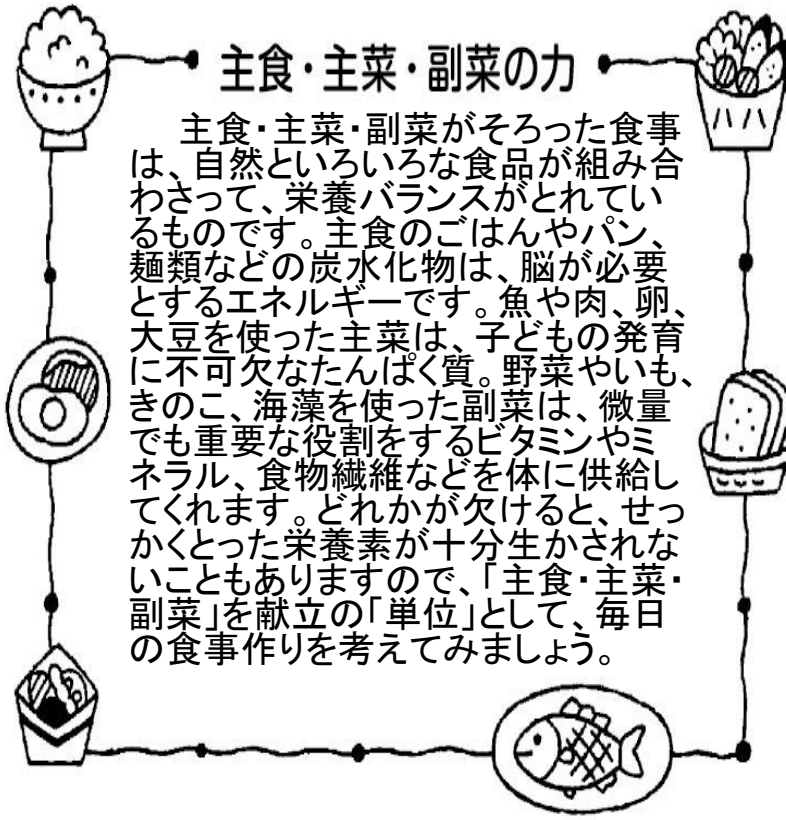 主食・主菜・副菜の力
主食・主菜・副菜がそろった食事
は、自然といろいろな食品が組み合
わさって、栄養バランスがとれてい
るものです。主食のごはんやパン、
麺類などの炭水化物は、脳が必要
とするエネルギーです。魚や肉、卵、
大豆を使った主菜は、子どもの発育
に不可欠なたんぱく質。野菜やいも、
きのこ、海藻を使った副菜は、微量
でも重要な役割をするビタミンやミ
ネラル、食物繊維などを体に供給し
てくれます。どれかが欠けると、せっ
かくとった栄養素が十分生かされな
いこともありますので、「主食・主菜・
副菜」を献立の「単位」として、毎日
の食事作りを考えてみましょう。